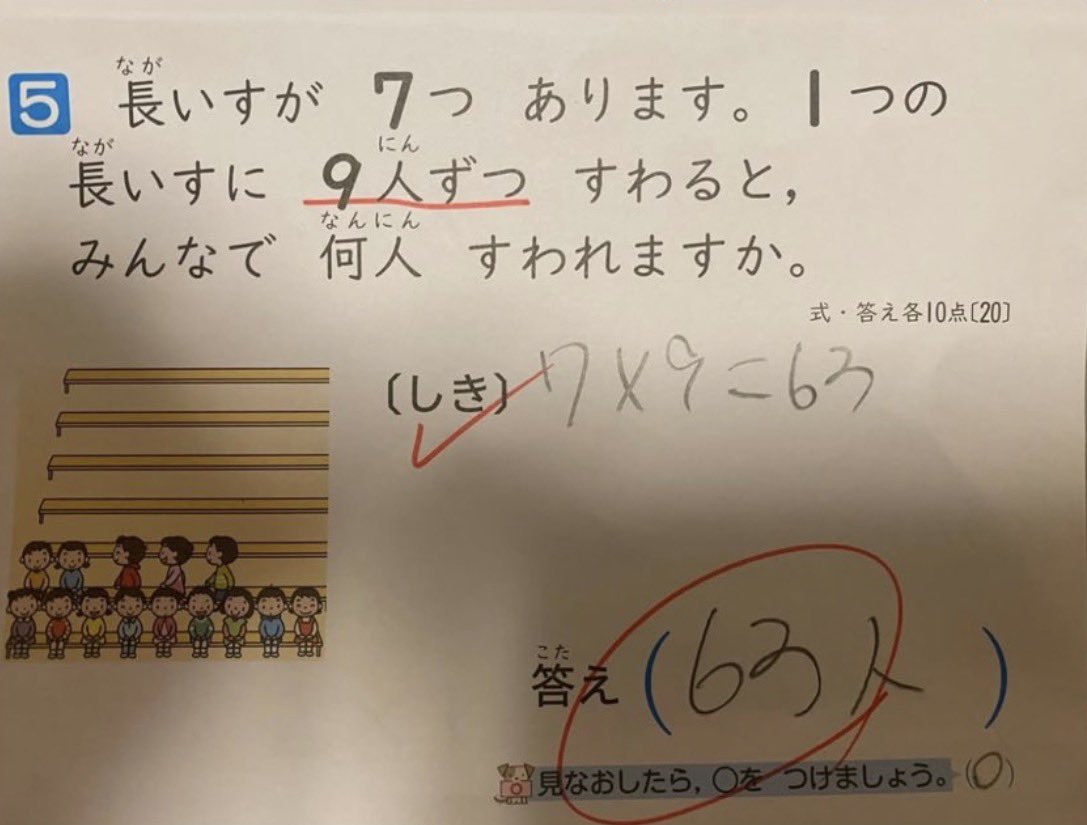 5 長いすが 7つ あります。1つの
長いすに 9人ずつ すわると,
みんなで 何人 すわれますか。
式・答え各10点〔20〕
〔しき〕 7×9=63
答え ( 63人 )
見なおしたら,○を つけましょう。(○)